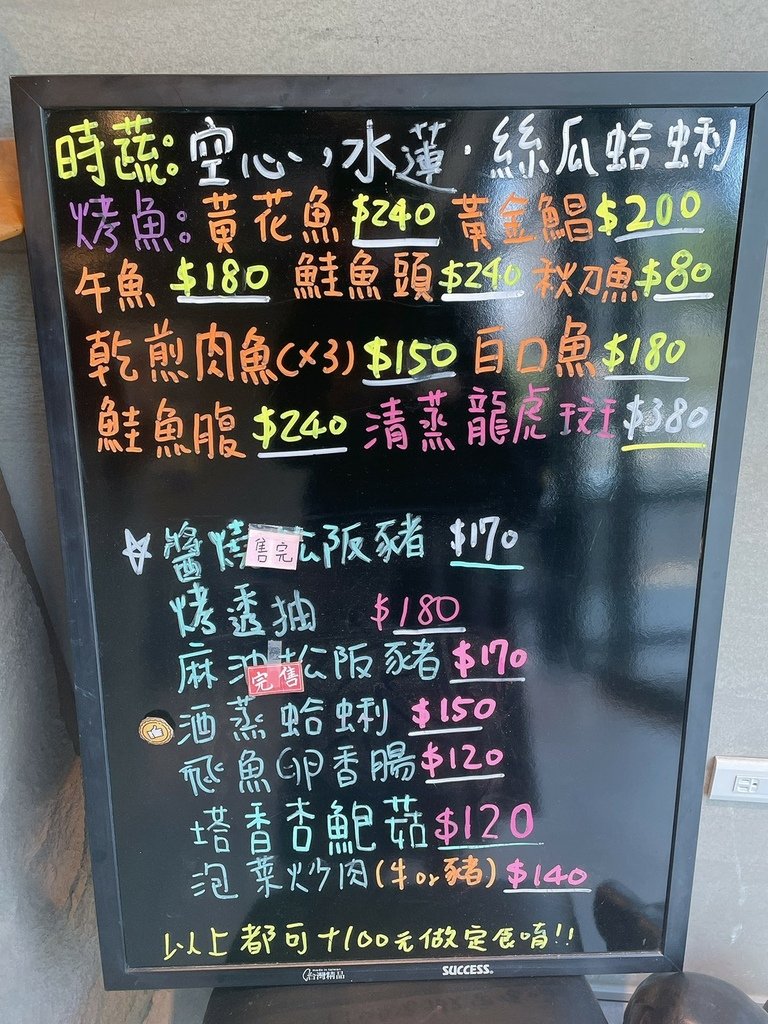 時蔬:空心,水蓮.絲瓜蛤蜊
烤魚:黃花魚$240 黃金鯧$200
午魚 $180 鮭魚頭$240 秋刀魚$80
乾煎肉魚(x3)$150 白口魚$180
鮭魚腹$240 清蒸龍虎斑$380
☆醬燒松阪豬 $170
售完
烤透抽 $180
麻油松阪豬$170
完售
酒蒸蛤蜊 $150
飛魚卵香腸$120
塔香杏鮑菇$120
泡菜炒肉(牛or豬)$140
以上都可+100元做定食唷!!
台灣精品
SUCCESS®